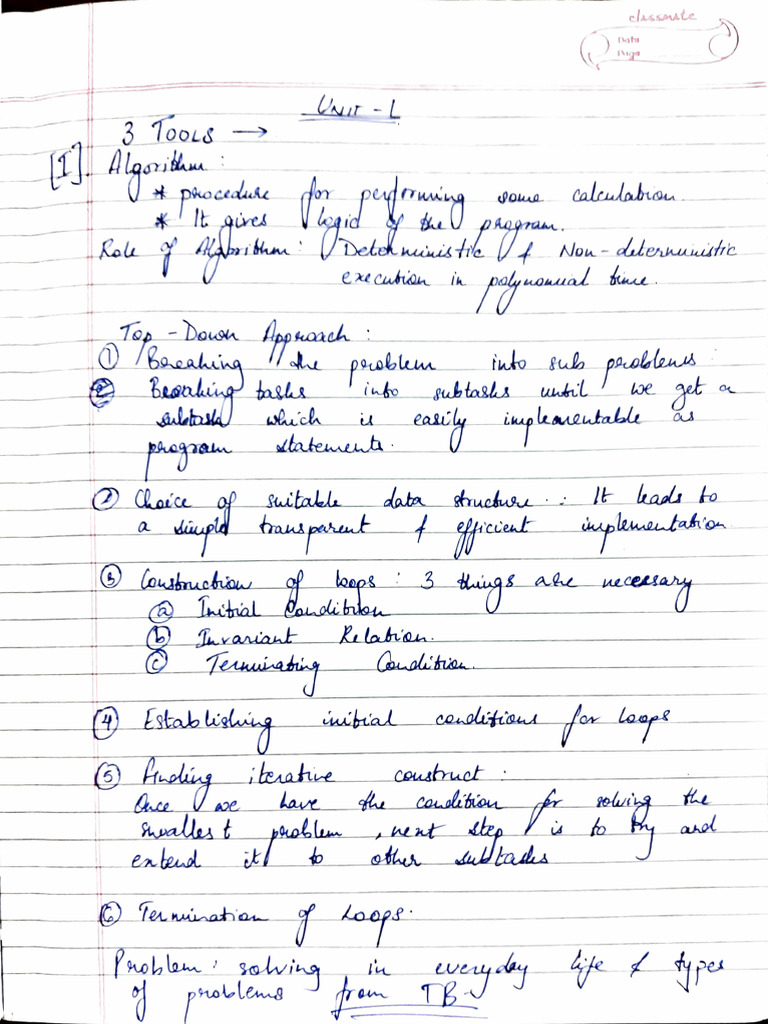 classmate
Date
Page
UNIT - 1
3 TOOLS →
[I]. Algorithm :
* procedure for performing some calculation.
* It gives logic of the program.
Role of Algorithm : Deterministic & Non-deterministic
execution in polynomial time.
Top-Down Approach :
① Breaking the problem into sub problems
Breaking tasks into subtasks until we get a
subtask which is easily implementable as
program statements.
② Choice of suitable data structure : It leads to
a simple transparent & efficient implementation
③ Construction of loops : 3 things are necessary
ⓐ Initial Condition
ⓑ Invariant Relation.
ⓒ Terminating Condition.
④ Establishing initial conditions for loops
⑤ Finding iterative construct :
Once we have the condition for solving the
smallest problem, next step is to try and
extend it to other subtasks
⑥ Termination of Loops.
Problem : solving in everyday life & types
of problems from TB